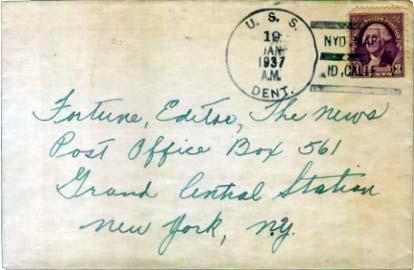 U. S. S.
19
JAN
1937
A.M.
DENT.
NYD, MAR
ID, CALIF
3
Fortune, Editor, The News
Post Office Box 561
Grand Central Station
New York, N.Y.